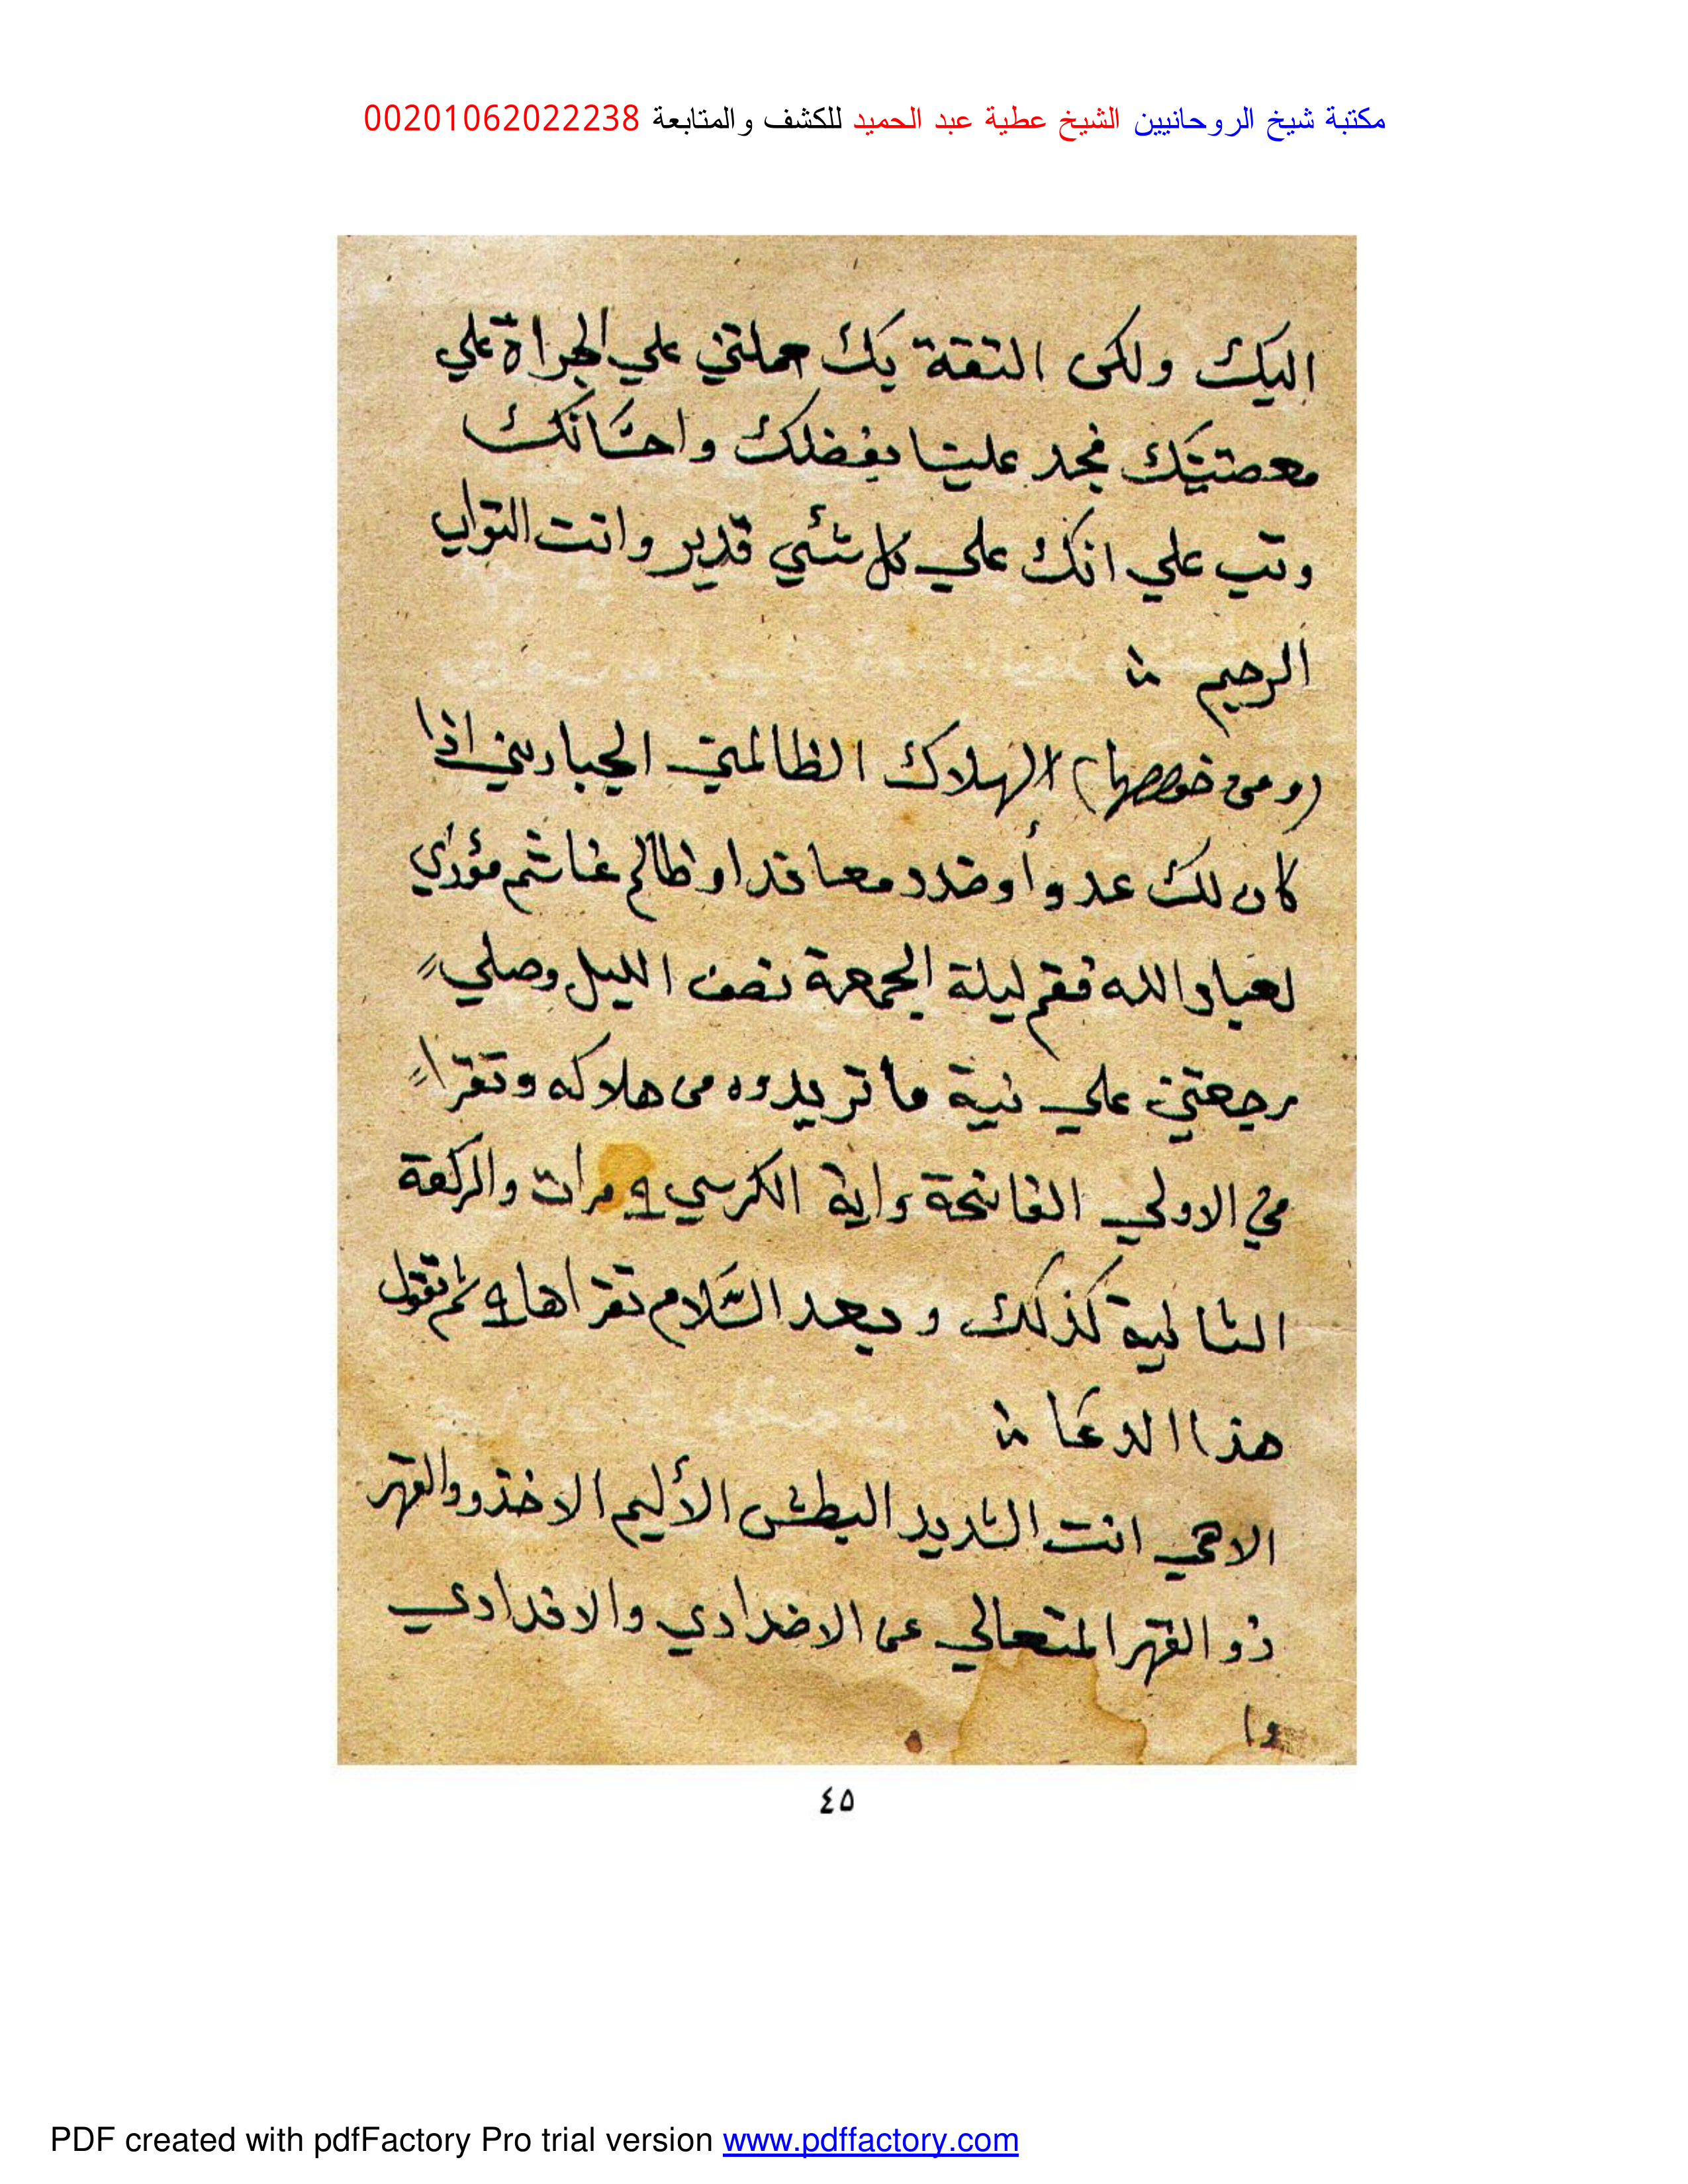 مكتبة شيخ الروحانيين الشيخ عطية عبد الحميد للكشف والمتابعة 00201062022238
اليك ولكن الثقة بك حملتني علي الجراة علي
معصتيتك فجد علينا بفضلك واحسانك
وتب علي انك علي كل شئي قدير وانت التواب
الرحيم
(ومن خوصها) الهلاك الظالمين الجبارين اذا
كان لك عدوا وضدد معاند او ظالم غاشم مؤذي
لعباد الله فقم ليلة الجمعة نصف الليل وصلي
رجعتين علي نية ما تريدوه من هلاكه وتقرا
في الاولي الفاتحة واية الكرسي ٩ مرات والركعة
الثانية كذلك وبعد السلام تقراها ٩ ثم تقول
هذا الدعا
الاهي انت الشديد البطش الأليم الاخذ ووالقهر
ذو القهر المتعالي عن الاضدادي والاندادي
وا
٤٥
PDF created with pdfFactory Pro trial version www.pdffactory.com